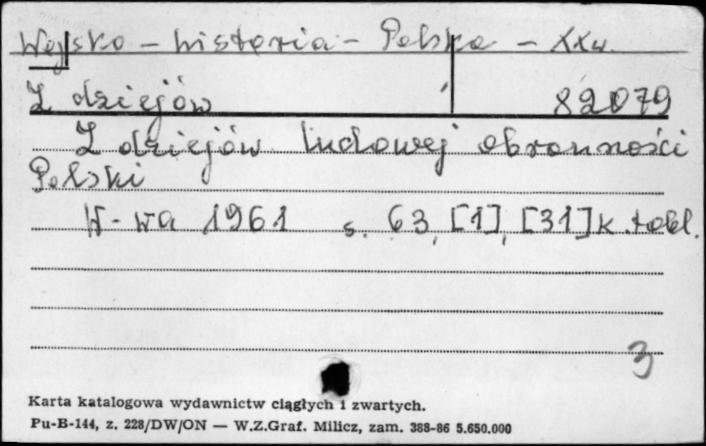 Wojsko - historia - Polska - XXw.
Z dziejów 82079
Z dziejów ludowej obronności
Polski
W-wa 1961 s. 63, [1], [31] k. tabl.
3
Karta katalogowa wydawnictw ciągłych i zwartych.
Pu-B-144, z. 228/DW/ON — W.Z.Graf. Milicz, zam. 388-86 5.650.000